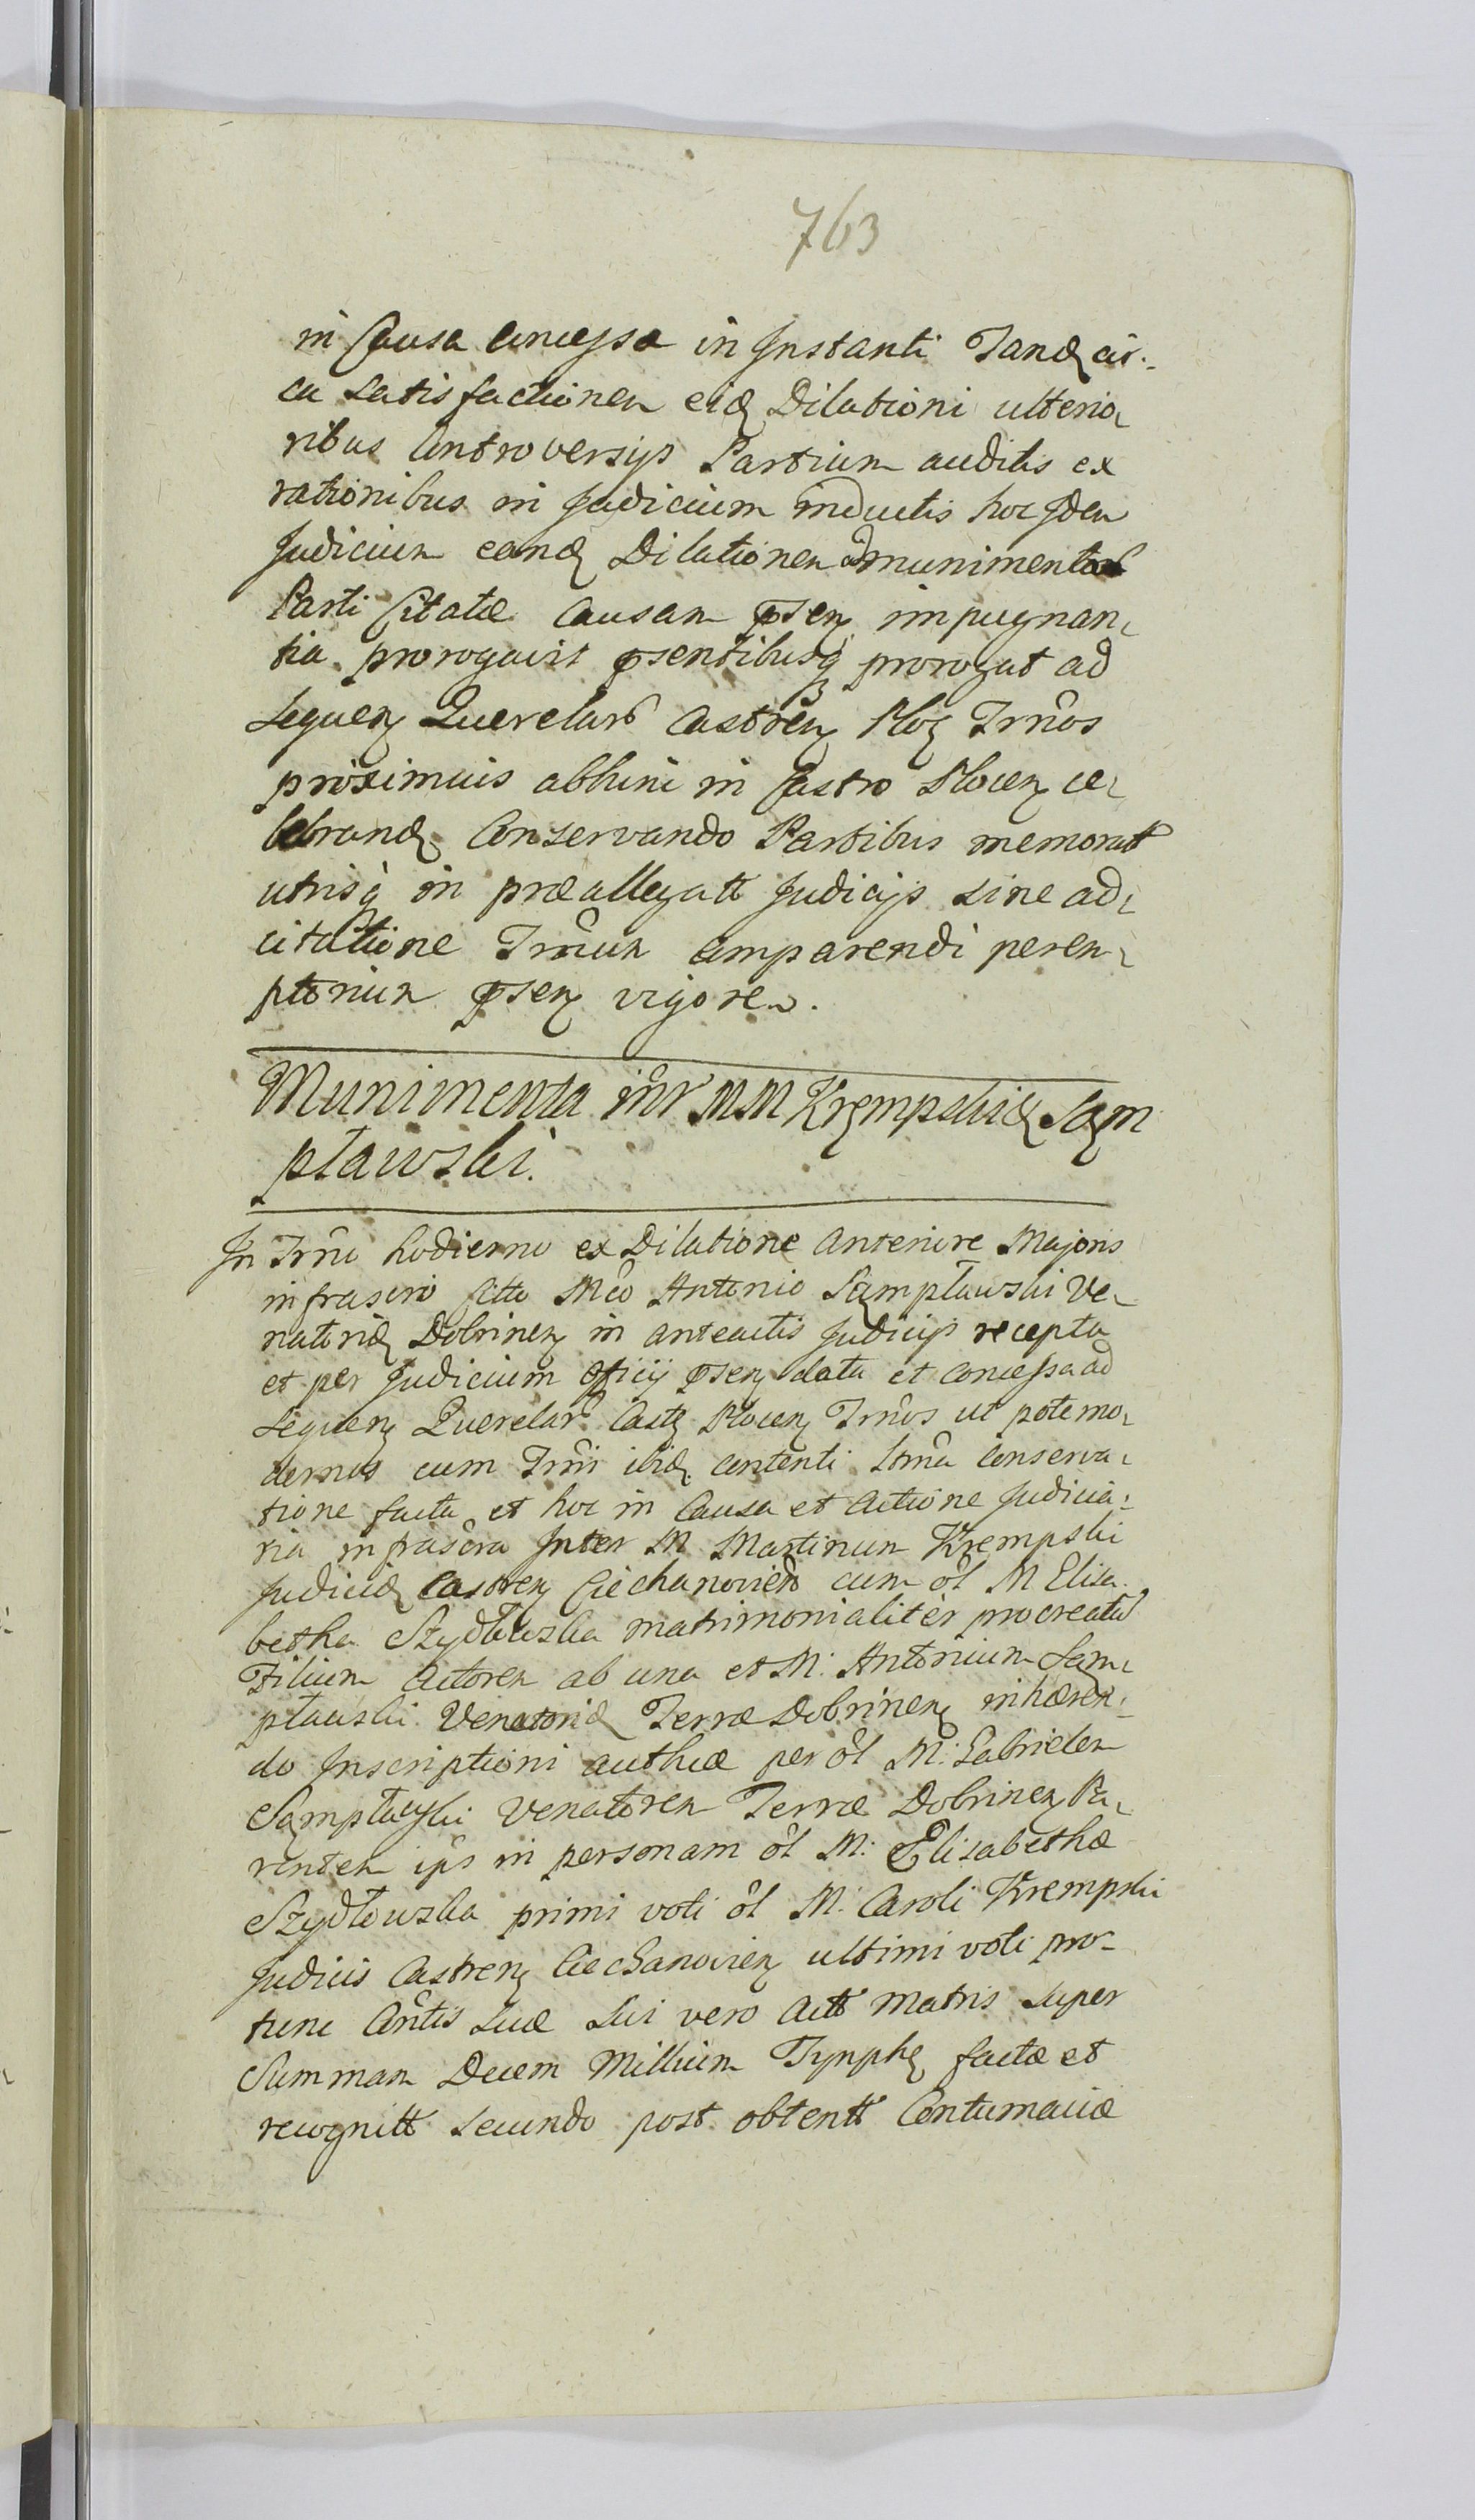 763
in Causa Concessa in Instanti Tandꝫ cir-
ca satisfactionem eidꝫ Dilationi ulterio-
ribus Controversijs Partium auditis ex
rationibus in Judicium inductis hoc Idem
Judicium eandꝫ Dilationem ad munimenta
Parti Citatæ Causam pñsenꝫ impugnan-
tia prorogavit pñsentibusqꝫ prorogat ad
sequenꝫ Querelarꝭ Castrenꝫ Plocꝫ Trmos
proximius abhinc in Castro Plocenꝫ ce-
lebrandꝫ Conservando Partibus memorat
utrisqꝫ in præallegatt Judicijs sine ad-
citatione Trmum comparendi perem-
ptorium pñsenꝫ vigore.
Munimenta intr MM Krzempski & Sąm
pławski.
In Trmo hodierno ex Dilatione Anteriore Majoris
infrascro Citto Mco Antonio Sąmpławski Ve-
natoridꝫ Dobrinenꝫ in anteactis Judicijs recepta
et per Judicium Officij pñsenꝫ data et concessa ad
sequenꝫ Querelarꝭ Castꝫ Plocenꝫ Trmos ut pote mo-
dernos cum Trmi ibidꝫ contenti Ltma Conserva-
tione facta et hoc in Causa et actione Judicia-
ria infrascra Inter M Martinum Krzempski
Judicidꝫ Castrenꝫ Ciechanovienꝫ cum ol M Elisa-
betha Szydłowska matrimonialitèr procreatũ
Filium Actorem ab una et M. Antonium Sąm-
pławski Venatoridꝫ Terræ Dobrinenꝫ inhæren-
do Inscriptioni authcæ per ol M. Gabrielem
Sąmpławski Venatorem Terræ Dobrinenꝫ Pa-
rentem ips in personam ol M. Elisabethæ
Szydłowska primi voti ol M. Caroli Krempski
Judicis Castrenꝫ Ciechanovienꝫ ultimi voti pro-
tunc Cntis suæ sui vero Act Matris super
Summam Decem Millium Tynphꝫ factæ et
recognitt secundo post obtentt Contumaciæ